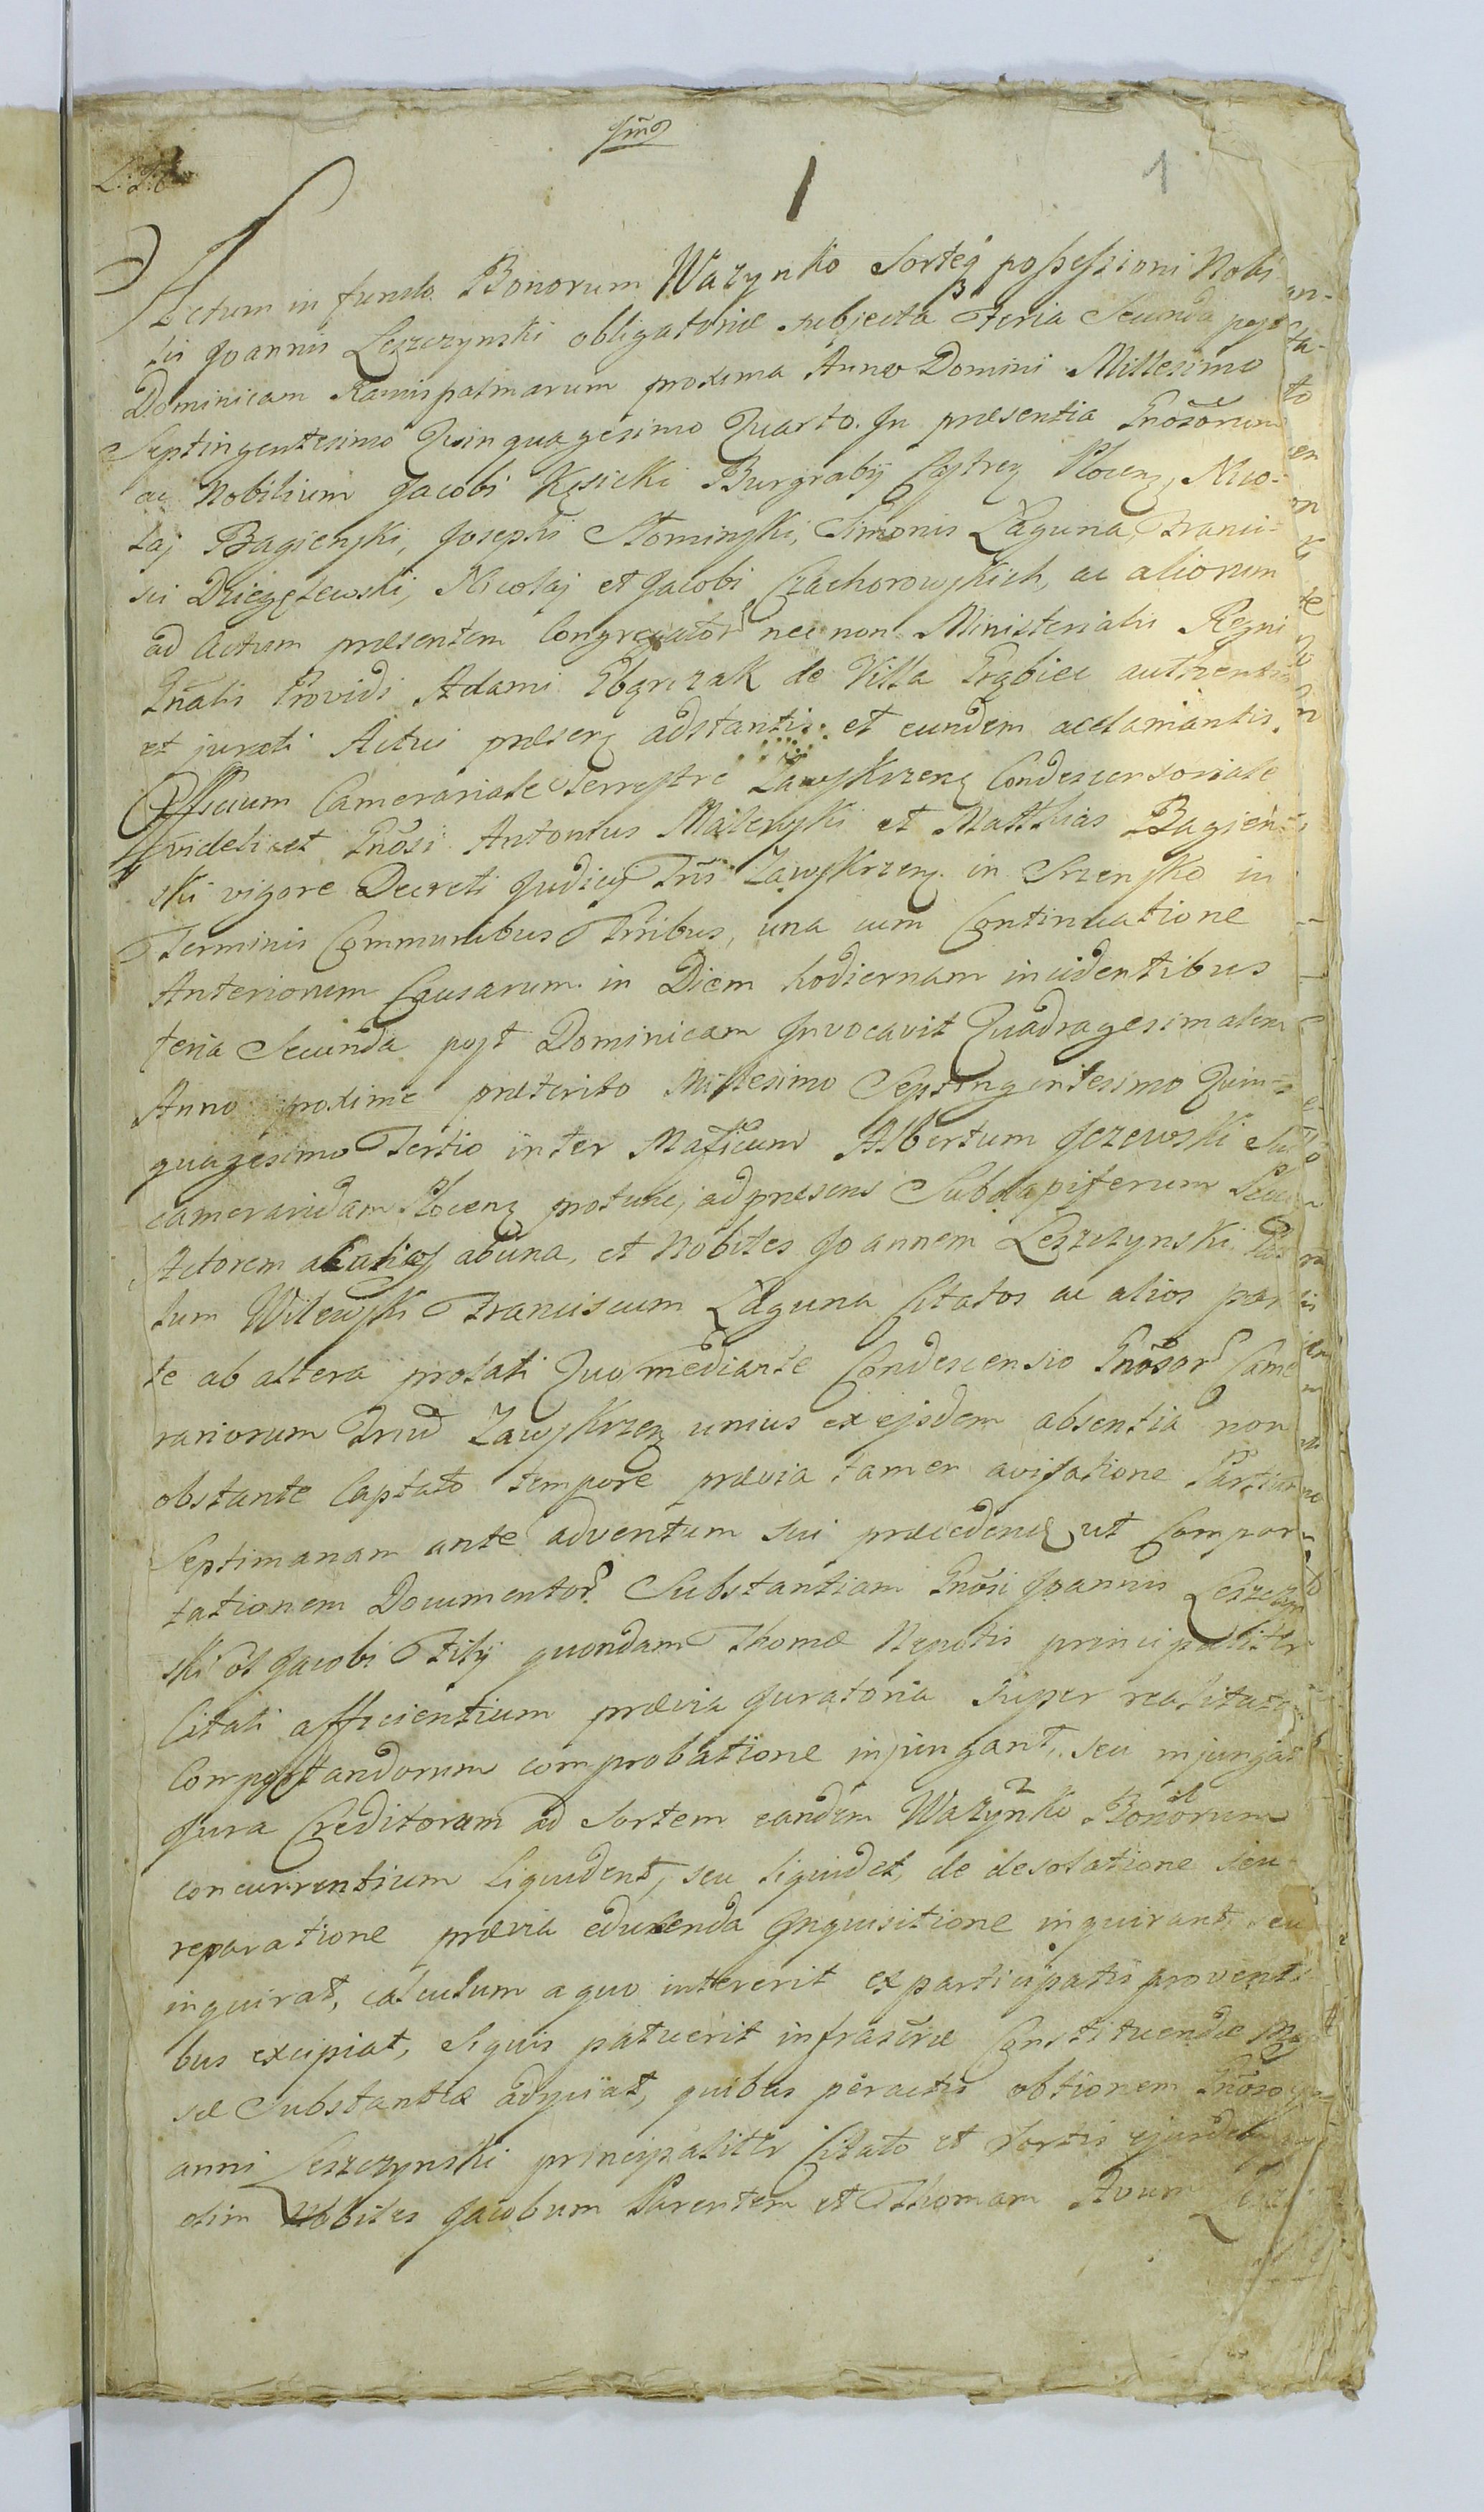 1
1
Actum in fundo Bonorum Wazynko Sorteq possessioni Nobi-
lis Joannis Leszczynski obligatoriæ subjecta Feria Secunda post
Dominicam Ramispalmarum proxima Anno Domini Millesimo
Septingentesimo Quinquagesimo Quarto. In præsentia Gnosorum
ac Nobilium Jacobi Kęsicki Burgrabij Castreñ Plocenȝ, Nico-
laj Bagienski, Josephi Słominski, Simonis Łaguna, Franci-
sci Dzięgelewski, Nicolaj et Jacobi Czachorowskich, ac aliorum
ad Actum præsentem Congregator nec non Ministerialis Regni
Gñalis Providi Adami Gbqrczak de Villa Grąbiec authentici
et jurati Actui præsenȝ adstantis et eundem acclamantis.
Officium Camerariale Terrestre Zawskrzenȝ Condescensoriale
videlicet Gñosi Antonius Malewski et Matthias Bagień-
ski vigore Decreti Judicij Trñs Zawskrzenȝ in Szrensko in
Terminis Communibus Trñibus, una cum Continuatione
Anteriorum Causarum in Diem hodiernam incidentibus
feria Secunda post Dominicam Invocavit Quadragesimalem
Anno proxime præterito Millesimo Septingentesimo Quin-
quagesimo Tertio inter Mağficum Albertum Jezewski Sub
camerariđam Plocenȝ protunc, ad præsens Subdapiferum
Actorem ab una, et Nobiles Joannem Leszczynski
lum Wilewski Franciscum Łaguna Citatos ac alios par
te ab altera prolati Quo mediante Condescensio Gñosor Came
rariorum Trium Zawskrzenȝ unius ex ejsdem absentia non
obstante Captato tempore prævia tamen avisatione Partium
Septimanam ante adventum sui præcedenȝ ut Compor
tationem Documentor Substantiam Gñosi Joannis Leszczyn
ski ol Jacobi Filij quondam Thomæ Nepotis principaliter
Citati afficientium prævia Juratoria super realitate
Comportandorum comprobatione injungant, seu injungat
Jura Creditorum ad Sortem eandem Wazynko Bonorum
concurrentium liquident, seu liquidet, de desolatione seu
reparatione prævia educenda Inquisitione inquirant seu
inquirat, calculum a quo intererit ex participatis proventi
bus excipiat, Siquis patuerit infrascræ Constituendæ Mas
sæ Substantiæ adjiciat, quibus peractis obtionem Gñoso
anni Leszczynski principaliter Citato et Sortis ejusdem
olim Nobiles Jacobum Parentem et Thomam Avum